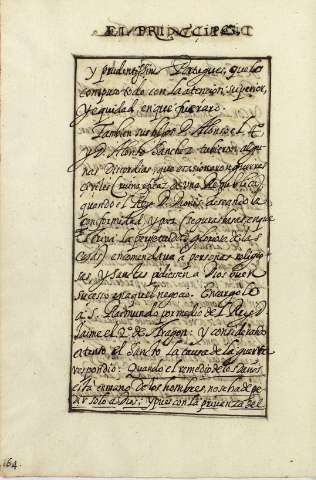 EL PRINCIPE
y prudentissimo Portugues, que los
compuso todo con la atencion superior,
y equidad, en que fue raro.
Tambien sus hijos D. Alonso el
y D. Alonso Sanchez tubieron algu
nas discordias que ocasionaron guerras
civiles (ruina de una Republica)
quando el Rey D. Dionis deseando la
conformidad, y paz (segura
la gloriosa de la
casa) encomendava a personas religio
sas, y santas pidiesen a Dios buen
sucesso en aquel negocio. Encargolo
a S. Raimundo por medio del Rey D.
Jaime el 2º de Aragon: y considerando
atento el Sancto la causa de la guerra
respondio: Quando el remedio de los daños
está en mano de los hombres, no se ha de pe
dir solo a Dios: y pues con la privanza del
164.